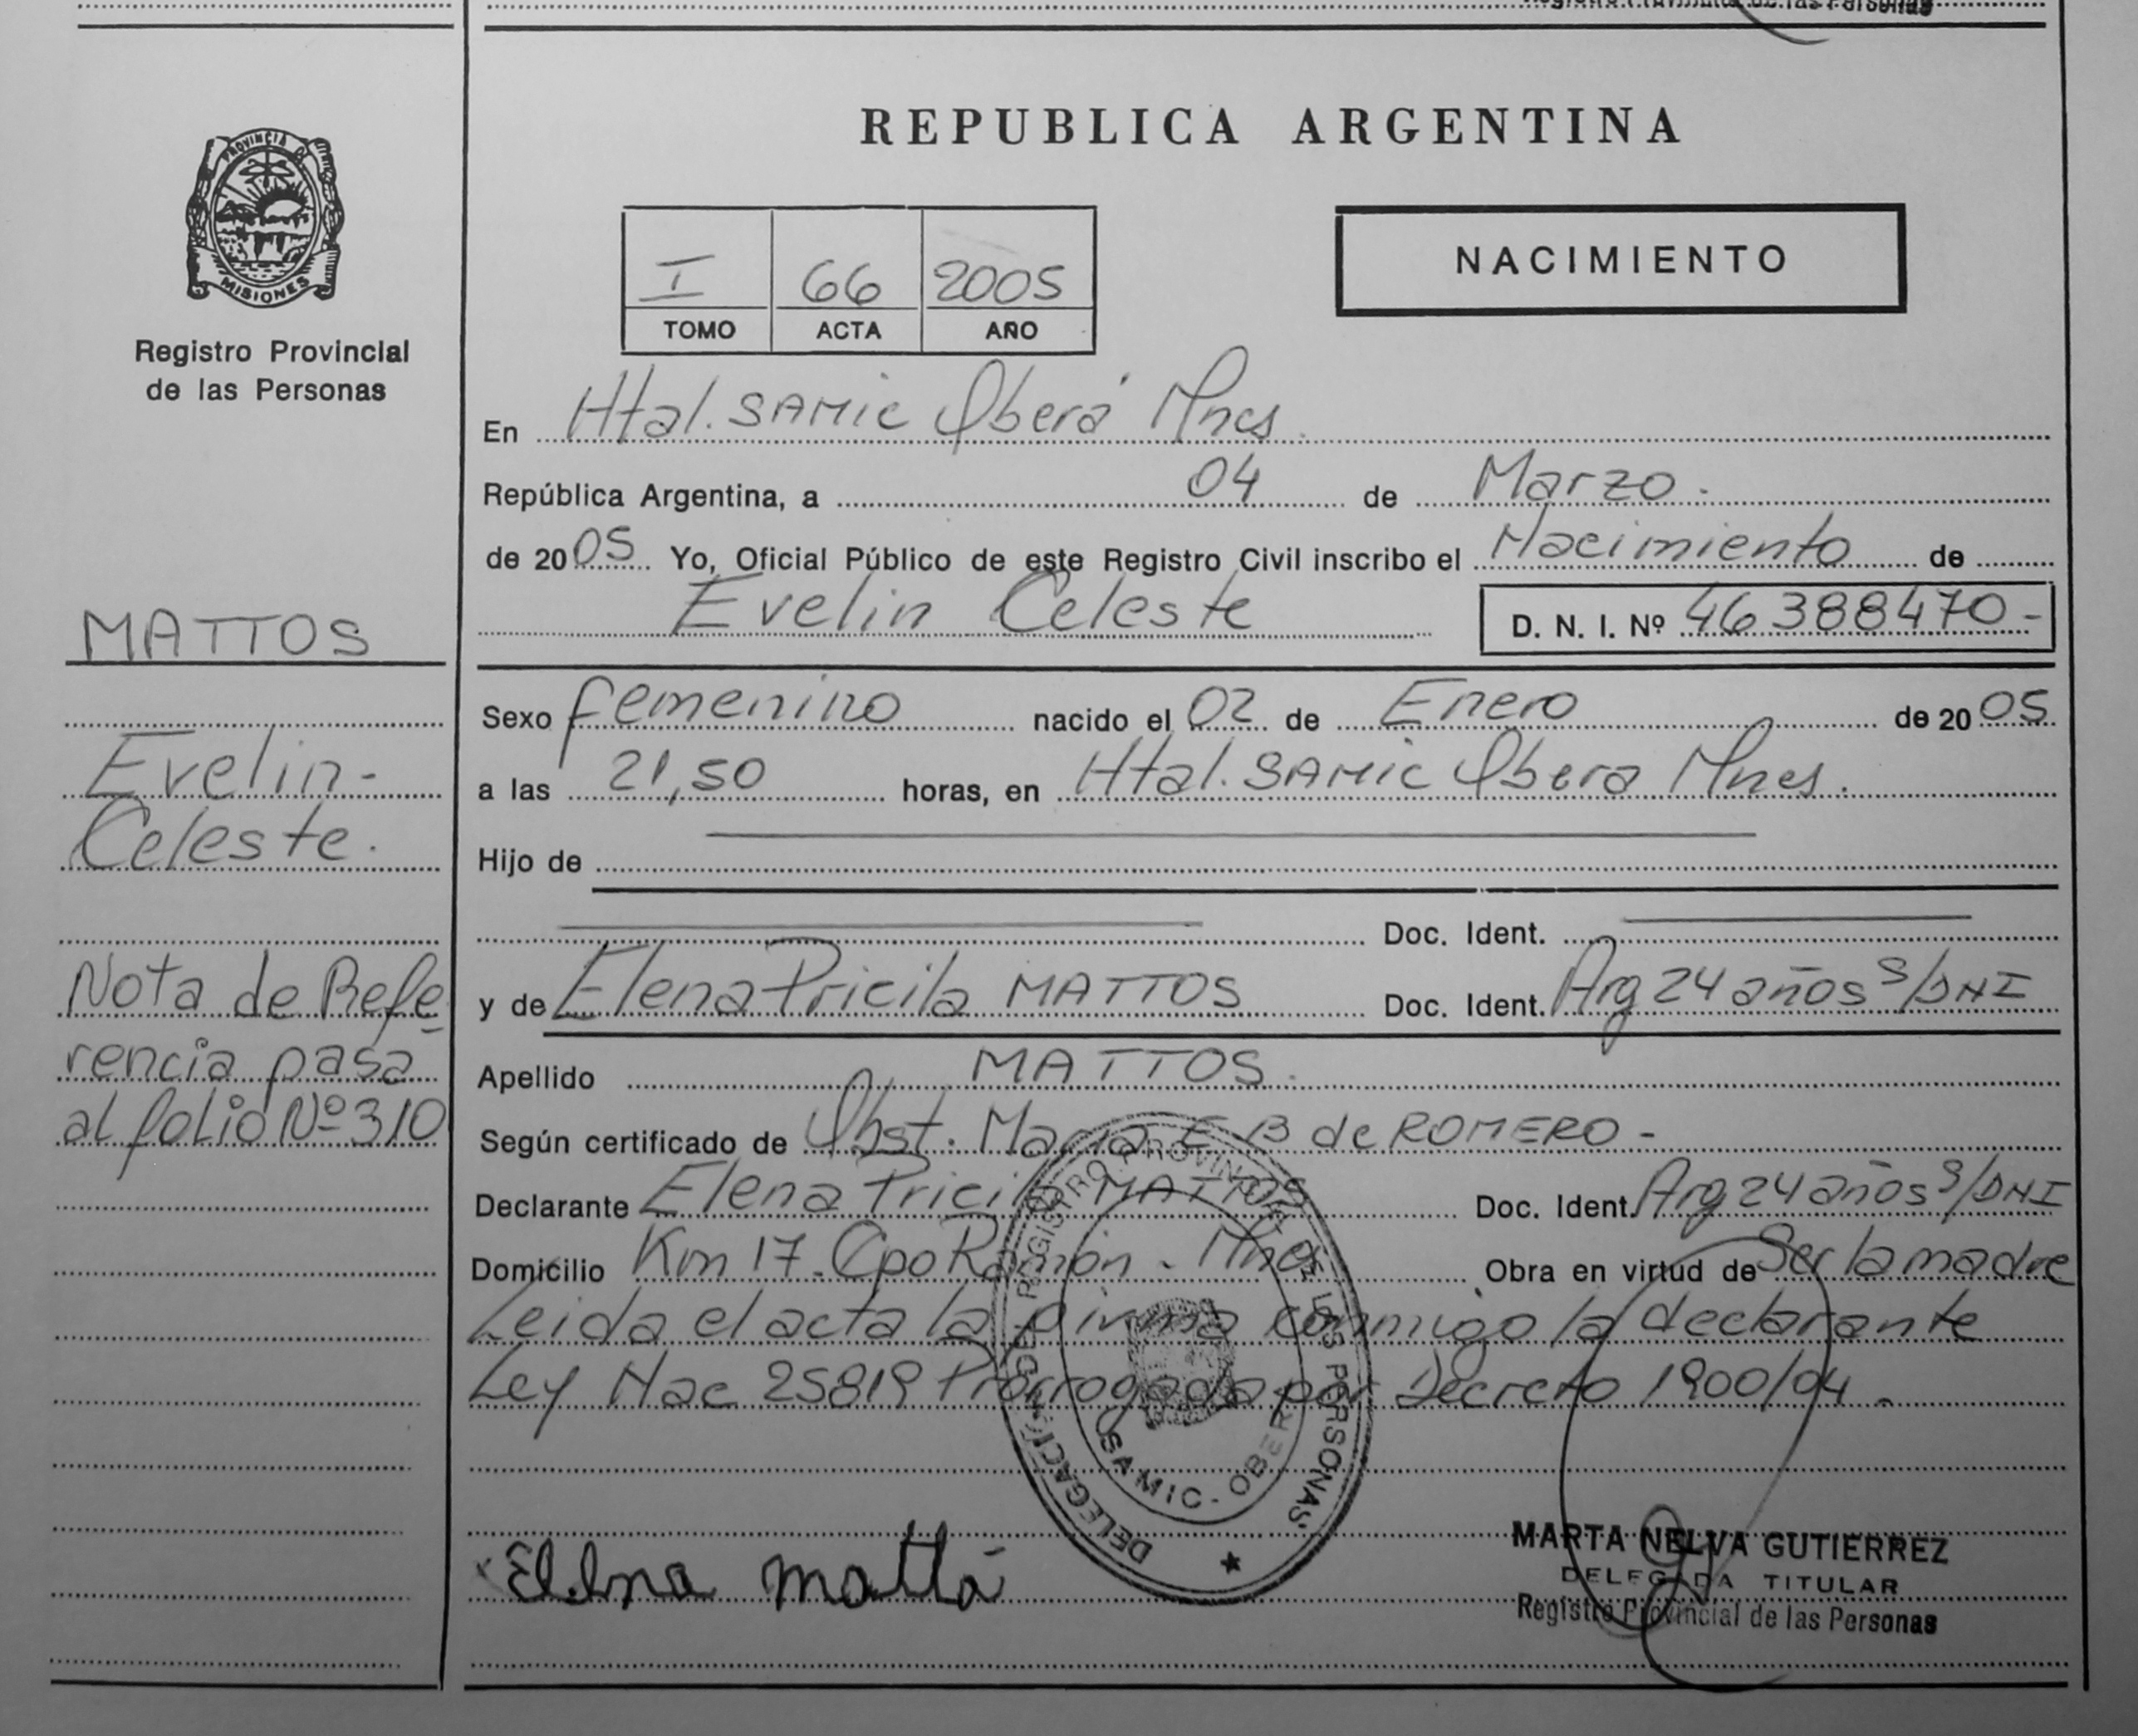 Registro Provincial de las Personas
REPUBLICA ARGENTINA
PROVINCIA D
MISIONES
Registro Provincial
de las Personas
I 66 2005
TOMO ACTA AÑO
NACIMIENTO
En Htal. SAMIC Oberá Mnes
República Argentina, a 04 de Marzo.
de 2005 Yo, Oficial Público de este Registro Civil inscribo el Nacimiento de
Evelin Celeste D. N. I. Nº 46388470-
MATTOS
Evelin-
Celeste.
Nota de Refe
rencia pasa
al folio Nº 310
Sexo femenino nacido el 02 de Enero de 2005
a las 21,50 horas, en Htal. SAMIC Obera Mnes.
Hijo de
Doc. Ident.
y de Elena Pricila MATTOS Doc. Ident. Arg 24 años S/DNI
Apellido MATTOS.
Según certificado de Obst. Maria E B de ROMERO -
Declarante Elena Pricila MATTOS Doc. Ident. Arg 24 años S/DNI
Domicilio Km 17. Cpo Ramón. Mnes Obra en virtud de Ser la madre
Leida el acta la firma conmigo la declarante
Ley Nac 25819 Prorrogada por Decreto 1900/04.
DELEGACIÓN DEL REGISTRO PROVINCIAL DE LAS PERSONAS
SAMIC - OBERA
Elena matto
MARTA NELVA GUTIERREZ
DELEGADA TITULAR
Registro Provincial de las Personas